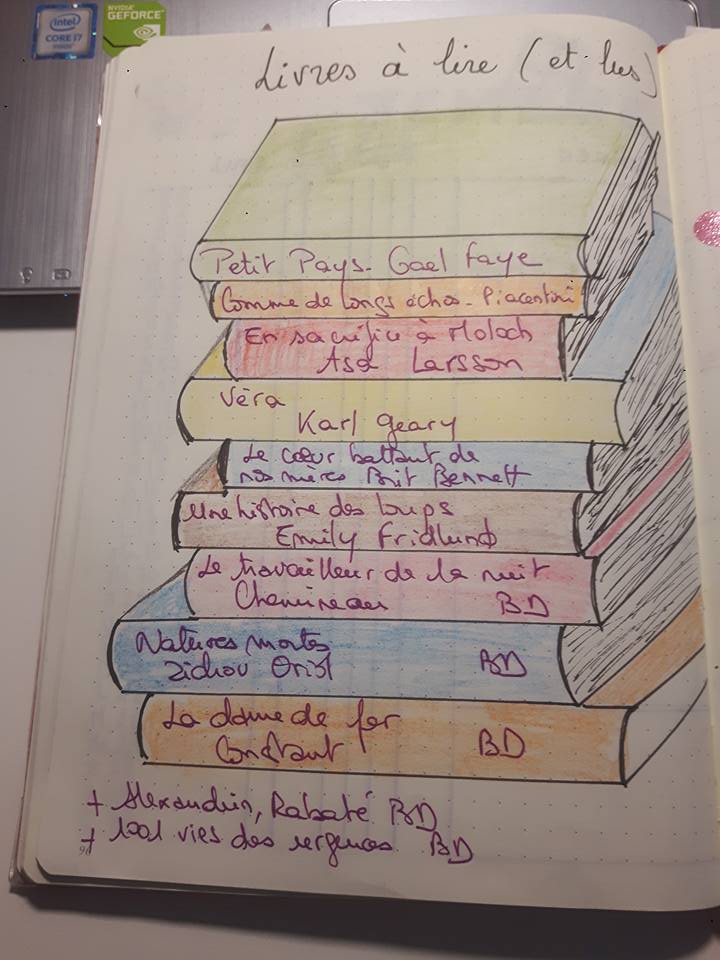 intel
CORE i7
inside
NVIDIA
GEFORCE
Livres à lire (et lus)
Petit Pays - Gael Faye
Comme de longs échos - Piacentini
En sacrifice à Moloch
Asa Larsson
Véra
Karl Geary
Le cœur battant de
nos mères Brit Bennett
Une histoire des loups
Emily Fridlund
Le travailleur de la nuit
Chemineau BD
Natures mortes
Zidrou Oriol BD
La dame de fer
Constant BD
+ Alexandrin, Rabaté BD
+ 1001 vies des urgences BD